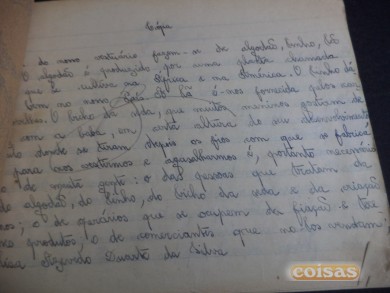 Cópia
do nosso vestuário fazem-se de algodão, linho, lã
O algodão é produzido por uma planta chamada
que se cultiva na África e na América. O linho dá
bem no nosso país. A lã é-nos fornecida pelos car
O bicho da seda, que muitos meninos gostam de
com a baba, em certa altura do seu desenvolvimento
donde se tiram depois os fios com que se fabrica
para nos vestirmos e agasalharmos é, portanto necessário
de muita gente: o das pessoas que tratam da
do algodão, do linho, do bicho da seda e da criação
; o de operários que se ocupam da fiação e tece
produtos; o de comerciantes que no-los vendam
Duarte da Silva
coisas